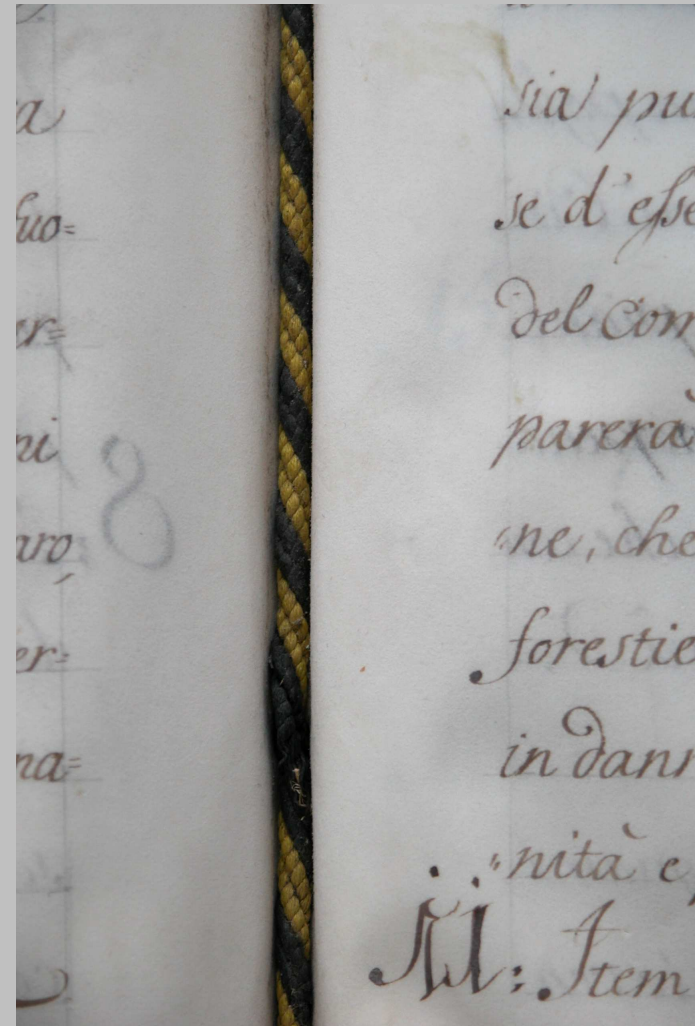 a
suo=
er=
ni
8
aro
er=
na=
sia pu
se d'esse
del Com
parerà
"ne, che
forestie
in dann
"nità e
M: Item